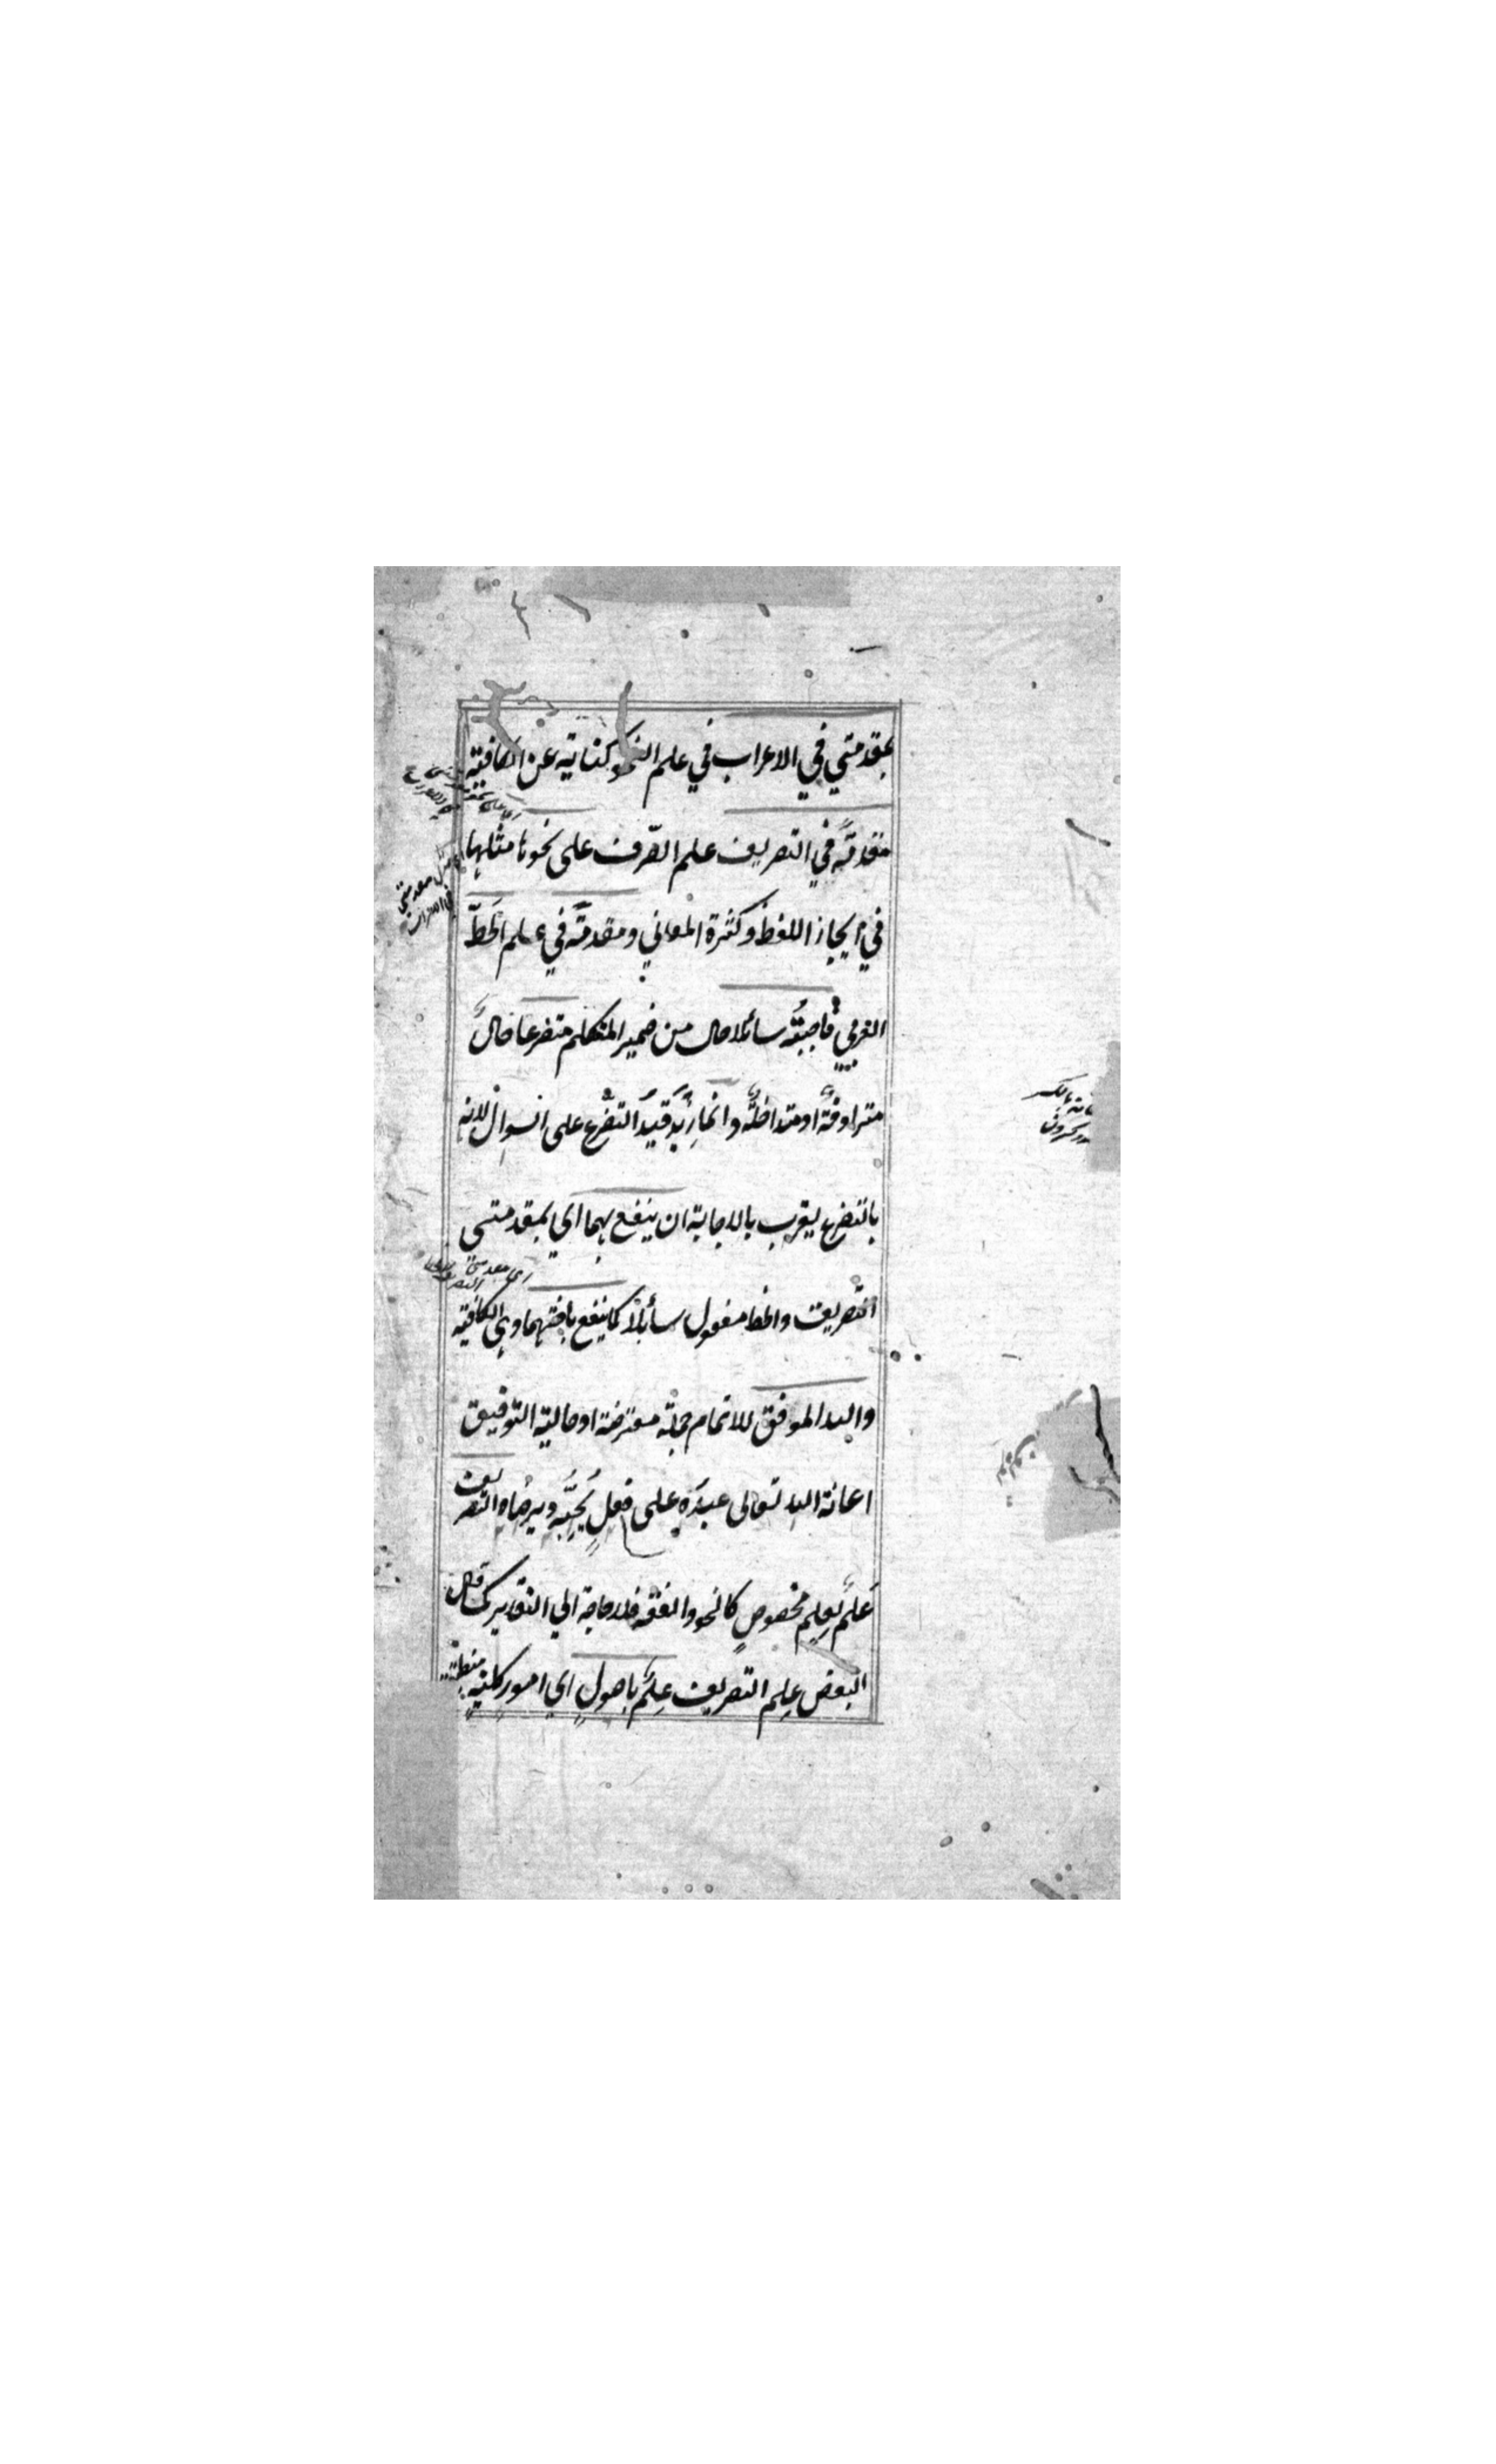 بمقدمتي في الاعراب في علم النحو كناية عن الكافية
مقدمةً في التصريف علم الصّرف على نحوها مثلها
في ايجاز اللفظ وكثرة المعاني ومقدمةً في علم الخطّ
العربي فاجبتُه سائلا حال من ضمير المتكلم متضرعا حالٌ
مترادفةٌ او متداخلةٌ وانما زِيدَ قيدُ التضرّع على السوال لانه
بالتضرع يقرب بالاجابة ان ينفع بهما اي بمقدمتي
التصريف والخط مفعول سائلا كما ينفع باختهما وهي الكافية
والله الموفق للاتمام جملة معترضة او حالية التوفيق
اعانة الله تعالى عبدَه على فعلٍ يُحِبُّه ويرضاه التصريف
عَلَمٌ لِعِلمٍ مخصوصٍ كالنحو والفقه فلا حاجة الي التقدير كما قال
البعض عِلم التصريف عِلمٌ باصولٍ اي امور كلية منطبقة
اي مقدمتي